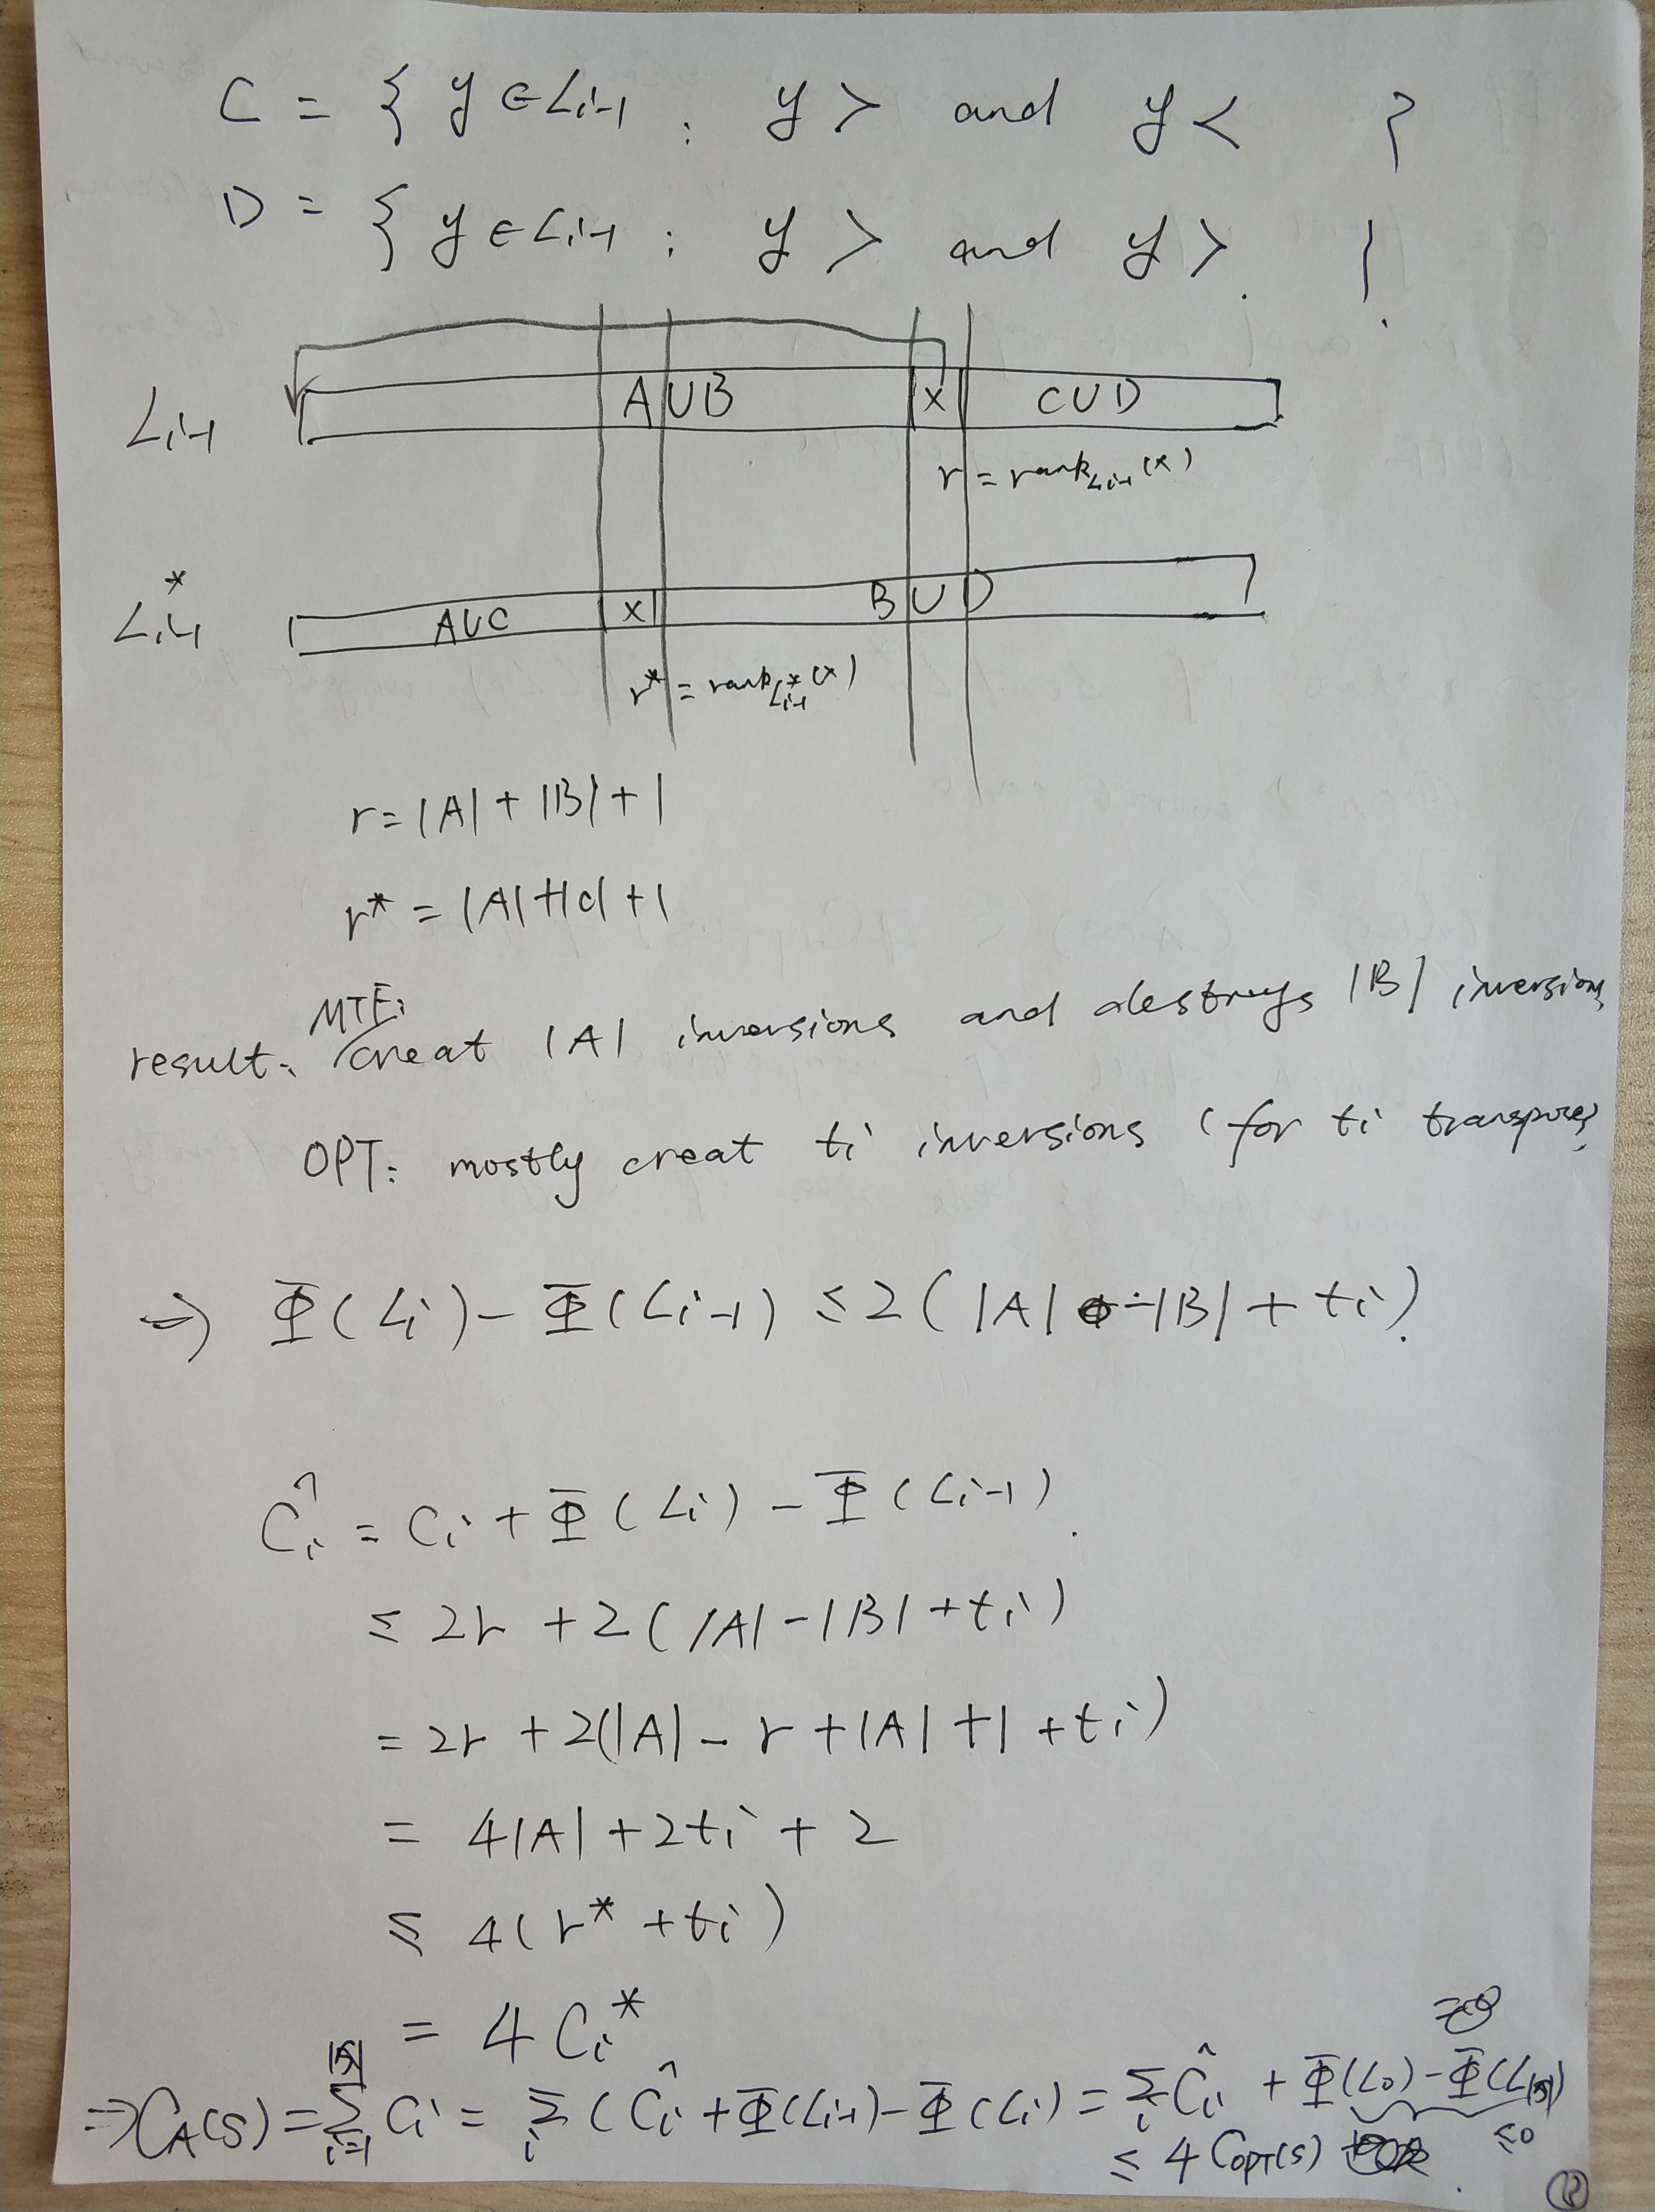 C = { y ∈ Li-1 : y > and y < }
D = { y ∈ Li-1 : y > and y > }
Li-1 A∪B x C∪D
r = rank Li-1 (x)
L*i-1 A∪C x B∪D
r* = rank L*i-1 (x)
r = |A| + |B| + 1
r* = |A| + |C| + 1
MTF:
result: creat |A| inversions and destroys |B| inversions
OPT: mostly creat ti inversions (for ti transposes)
⇒ Φ(Li) - Φ(Li-1) ≤ 2(|A| - |B| + ti).
Ĉi = Ci + Φ(Li) - Φ(Li-1).
≤ 2r + 2(|A| - |B| + ti)
= 2r + 2(|A| - r + |A| + 1 + ti)
= 4|A| + 2ti + 2
≤ 4(r* + ti)
= 4Ci*
⇒ CA(S) = Σ i=1 |S| Ci = Σ i (Ĉi + Φ(Li-1) - Φ(Li) = Σ i Ĉi + Φ(L0) - Φ(L|S|)
≤ 4 COPT(S) ≤0